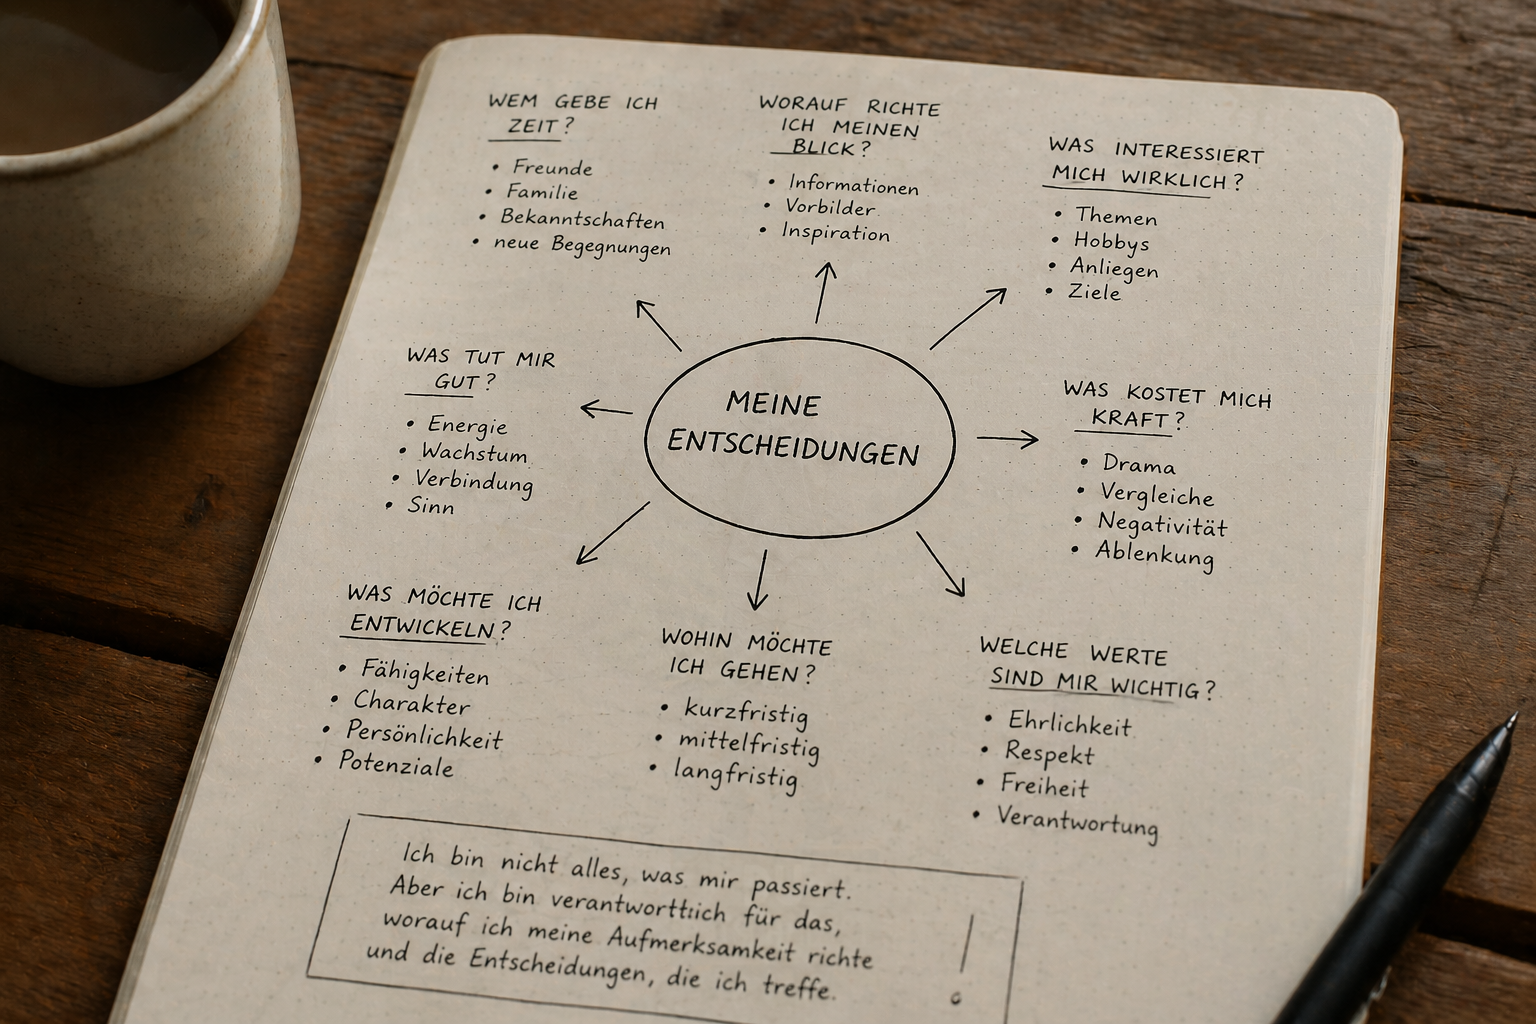 WEM GEBE ICH
ZEIT?
• Freunde
• Familie
• Bekanntschaften
• neue Begegnungen
WORAUF RICHTE
ICH MEINEN
BLICK?
• Informationen
• Vorbilder
• Inspiration
WAS INTERESSIERT
MICH WIRKLICH?
• Themen
• Hobbys
• Anliegen
• Ziele
WAS TUT MIR
GUT?
• Energie
• Wachstum
• Verbindung
• Sinn
MEINE
ENTSCHEIDUNGEN
WAS KOSTET MICH
KRAFT?
• Drama
• Vergleiche
• Negativität
• Ablenkung
WAS MÖCHTE ICH
ENTWICKELN?
• Fähigkeiten
• Charakter
• Persönlichkeit
• Potenziale
WOHIN MÖCHTE
ICH GEHEN?
• kurzfristig
• mittelfristig
• langfristig
WELCHE WERTE
SIND MIR WICHTIG?
• Ehrlichkeit
• Respekt
• Freiheit
• Verantwortung
Ich bin nicht alles, was mir passiert.
Aber ich bin verantwortlich für das,
worauf ich meine Aufmerksamkeit richte
und die Entscheidungen, die ich treffe.
!